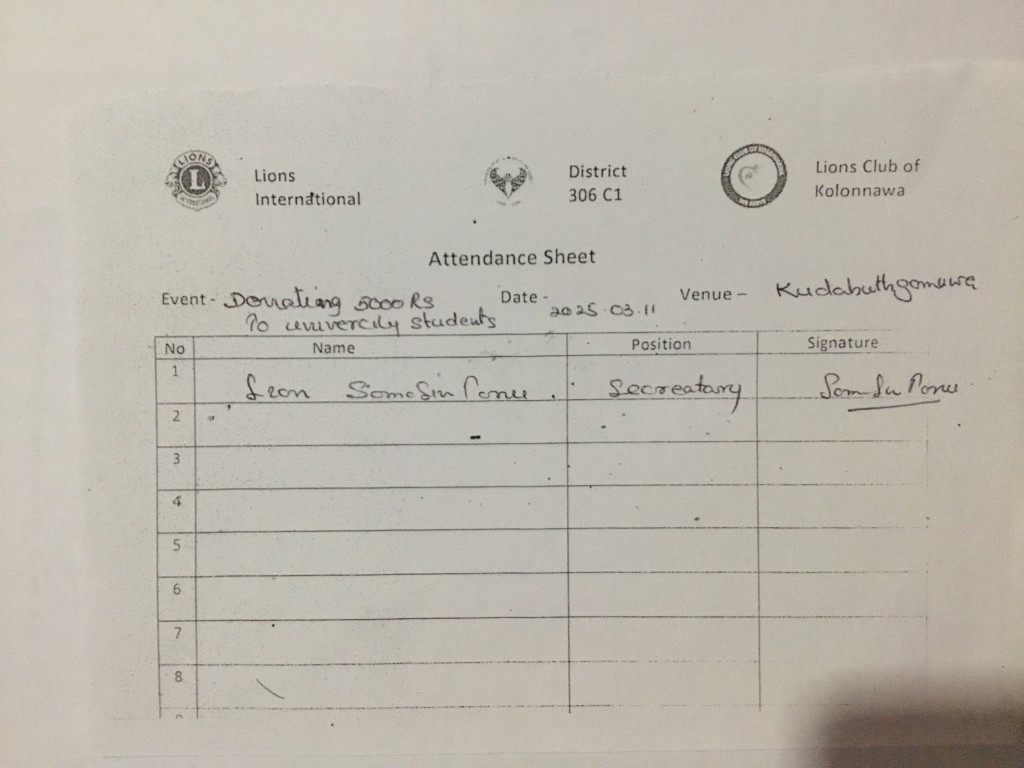 LIONS
L
INTERNATIONAL
Lions
International
District
306 C1
Lions Club of
Kolonnawa
Attendance Sheet
Event - Donating 5000 Rs
To univercity students
Date - 2025.03.11
Venue - Kudabuthgomuwa
No Name Position Signature
1 Secreatary
2
3
4
5
6
7
8